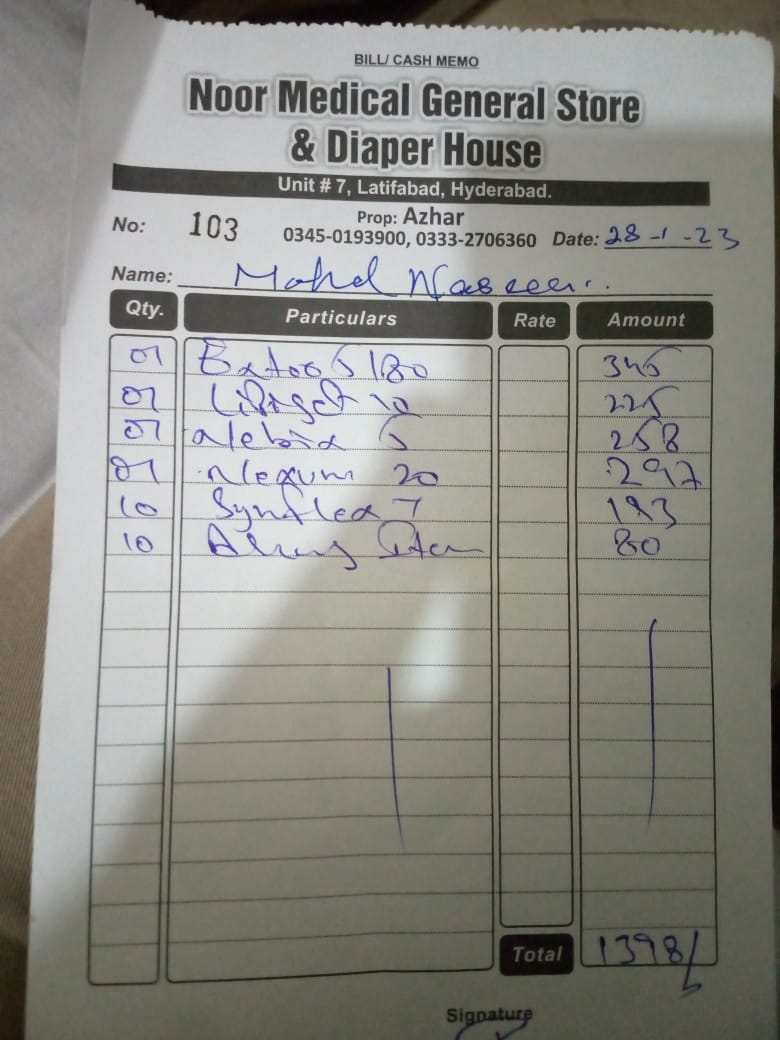 BILL/ CASH MEMO
Noor Medical General Store
& Diaper House
Unit # 7, Latifabad, Hyderabad.
No: 103 Prop: Azhar
0345-0193900, 0333-2706360 Date: 28-1-23
Name: Mohd Naseer
Qty. Particulars Rate Amount
01 Extor 5/80 345
01 Lipiget 10 225
01 5 258
01 Nexum 20 297
10 Synflex 193
10 80
Total 1398/
Signature